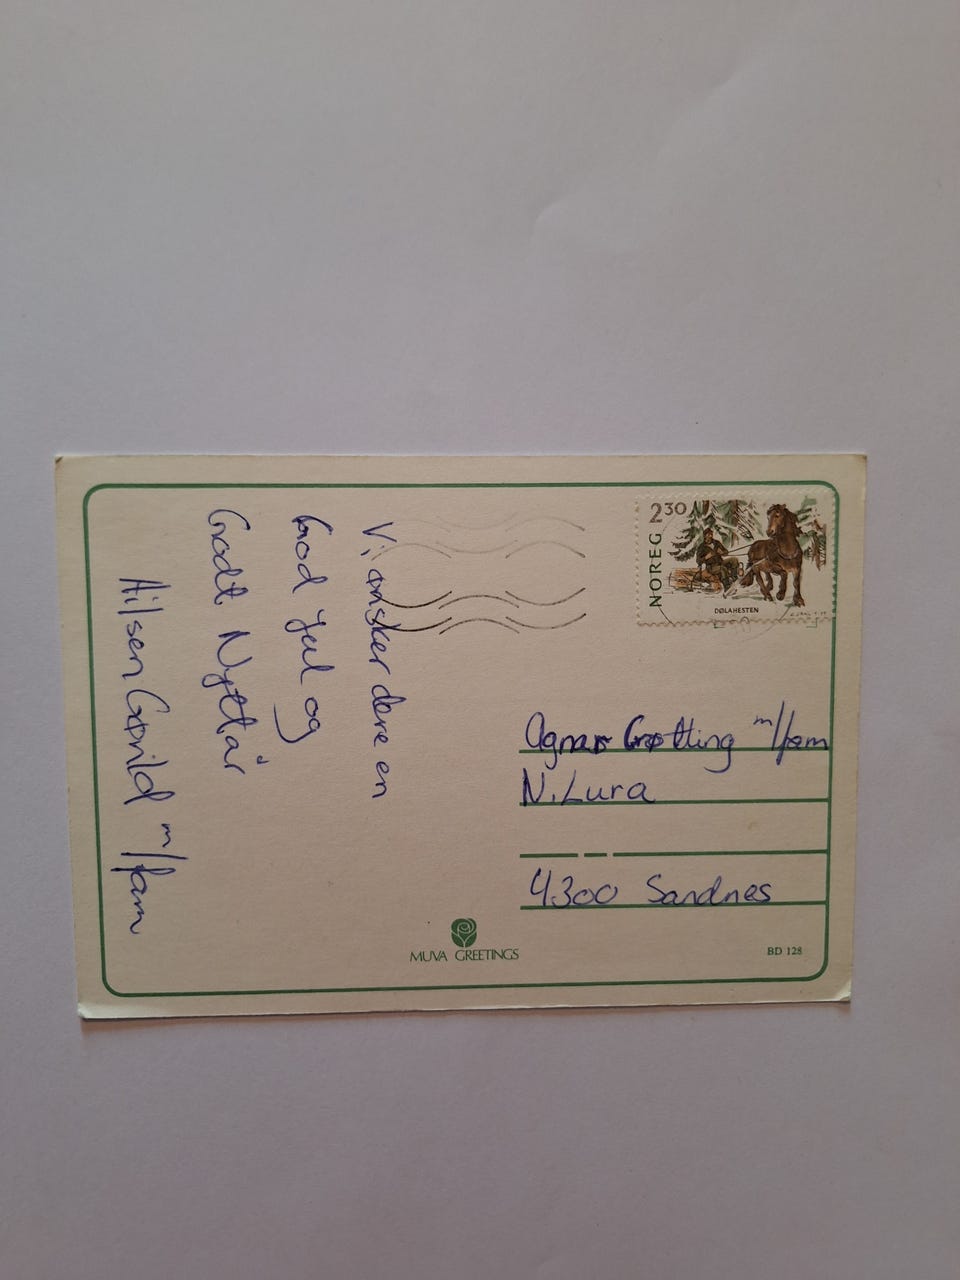 Vi ønsker dere en
God Jul og
Godt Nyttår
Hilsen Gønild m/fam
230
NOREG
DØLAHESTEN
Agnar Grøtting m/fam
N. Lura
4300 Sandnes
MUVA GREETINGS
BD 128